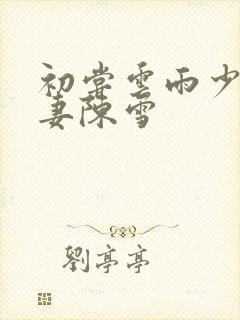 初嘗雲雨少
妻陳雪
劉亭亭